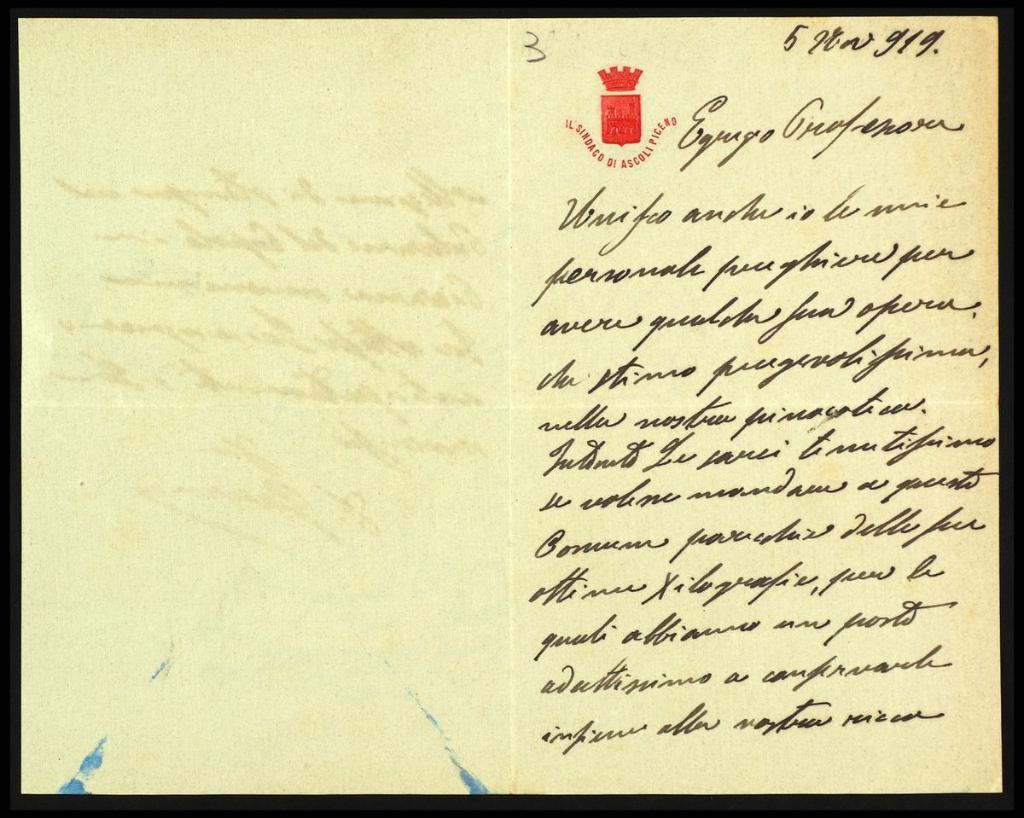 3
5 Nov 919.
IL SINDACO DI ASCOLI PICENO
Egregio Professore
Unisco anche io le mie
personali preghiere per
avere qualche sua opera,
che stimo pregevolissima,
nella nostra pinacoteca.
Intanto Le sarei tenutissimo
se volesse mandare a questo
Comune parecchie delle sue
ottime Xilografie, per le
quali abbiamo un posto
adattissimo a conservarle
insieme alla nostra ricca